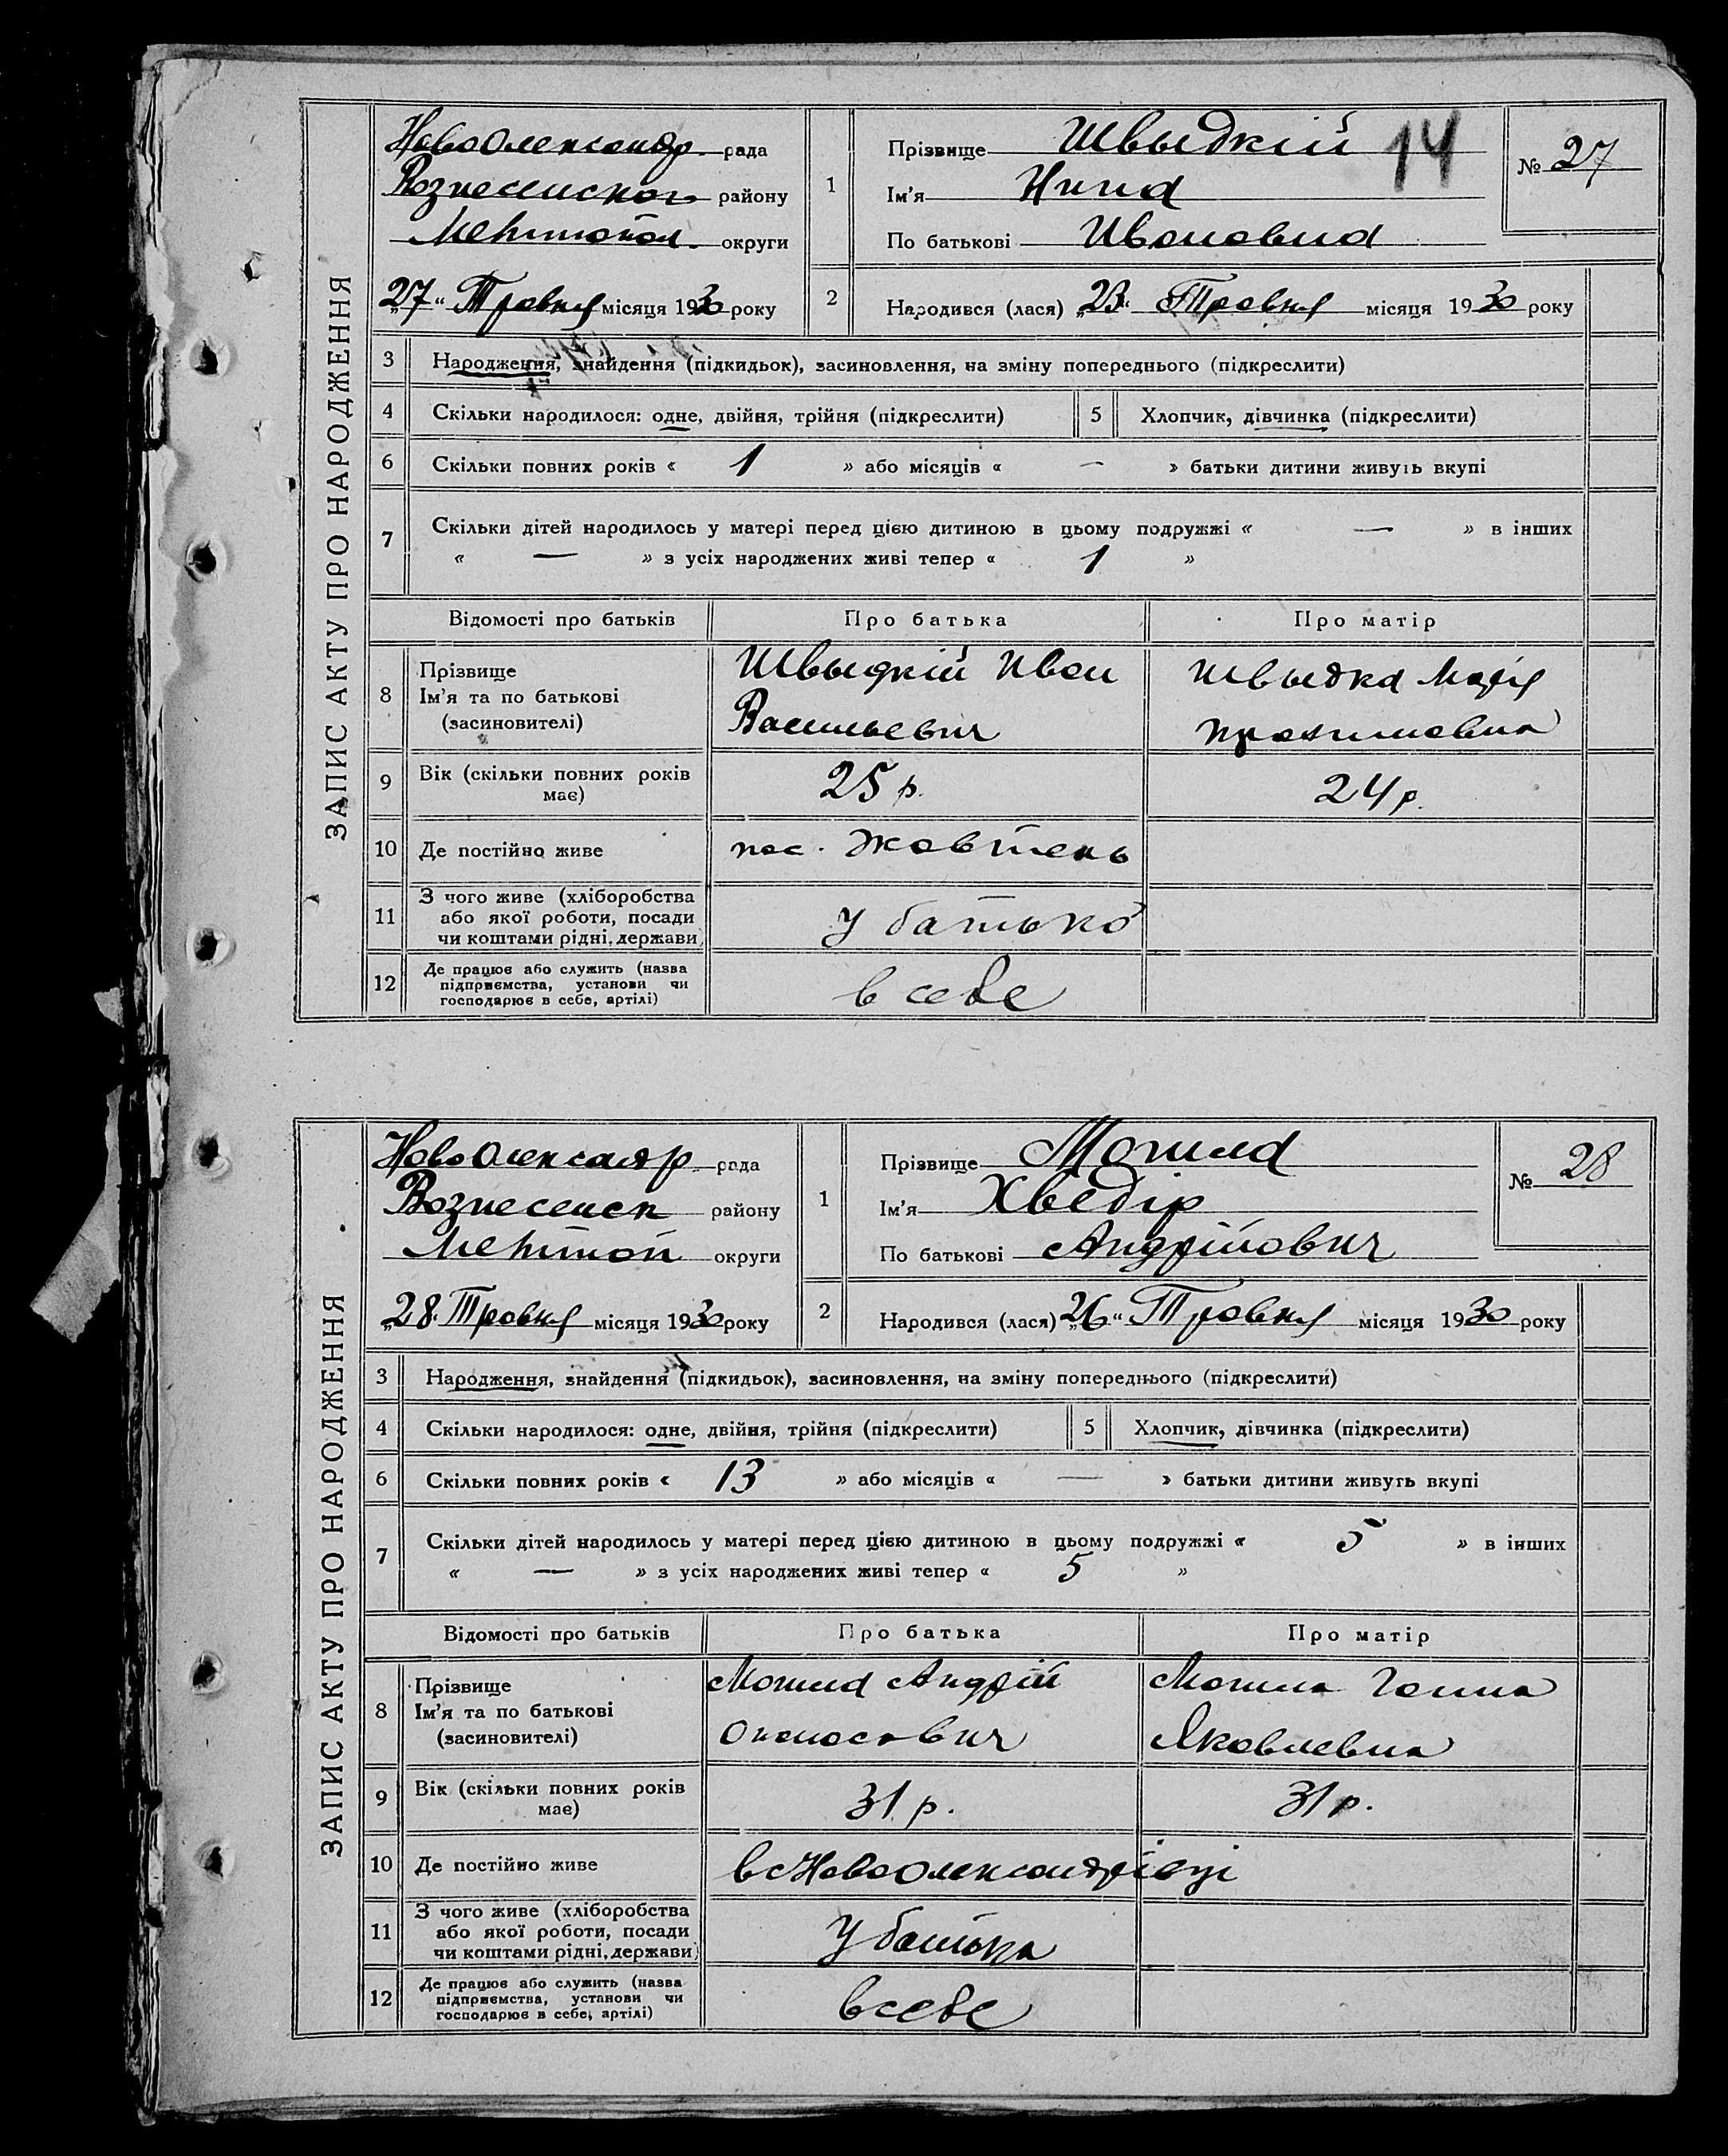 ЗАПИС АКТУ ПРО НАРОДЖЕННЯ
Новоолександр. рада
Вознесенского району
Мелітопол. округи
„27“ Травня місяця 1930 року
1
Прізвище Швыдкій
14
Ім'я Нина
По батькові Ивановна
№ 27
2
Народився (лася) „23“ Травня місяця 1930 року
3 Народження, знайдення (підкидьок), засиновлення, на зміну попереднього (підкреслити)
4 Скільки народилося: одне, двійня, трійня (підкреслити) 5 Хлопчик, дівчинка (підкреслити)
6 Скільки повних років « 1 » або місяців « — » батьки дитини живуть вкупі
7 Скільки дітей народилось у матері перед цією дитиною в цьому подружжі « — » в інших
« — » з усіх народжених живі тепер « 1 »
Відомості про батьків Про батька Про матір
8 Прізвище Швыдкій Иван Швыдка Марія
Ім'я та по батькові
(засиновителі) Васильевич
9 Вік (скільки повних років має) 25 р. 24 р.
10 Де постійно живе пос. Жовтень
11 З чого живе (хліборобства
або якої роботи, посади у батько
чи коштами рідні, держави)
12 Де працює або служить (назва
підприємства, установи чи в себе
господарює в себе, артілі)
ЗАПИС АКТУ ПРО НАРОДЖЕННЯ
Новоолександр рада
Вознесенск району
Мелітоп округи
„28. Травня місяця 1930 року
1
Прізвище Могила
Ім'я Хведір
По батькові Андрійович
№ 28
2
Народився (лася) „26“ Травня місяця 1930 року
3 Народження, знайдення (підкидьок), засиновлення, на зміну попереднього (підкреслити)
4 Скільки народилося: одне, двійня, трійня (підкреслити) 5 Хлопчик, дівчинка (підкреслити)
6 Скільки повних років « 13 » або місяців « — » батьки дитини живуть вкупі
7 Скільки дітей народилось у матері перед цією дитиною в цьому подружжі « 5 » в інших
« — » з усіх народжених живі тепер « 5 »
Відомості про батьків Про батька Про матір
8 Прізвище Могила Андрій Могила Ганна
Ім'я та по батькові
(засиновителі) Опанасович Яковлевна
9 Вік (скільки повних років має) 31 р. 31 р.
10 Де постійно живе в с Новоолександрівці
11 З чого живе (хліборобства
або якої роботи, посади У батька
чи коштами рідні, держави)
12 Де працює або служить (назва
підприємства, установи чи в себе
господарює в себе, артілі)